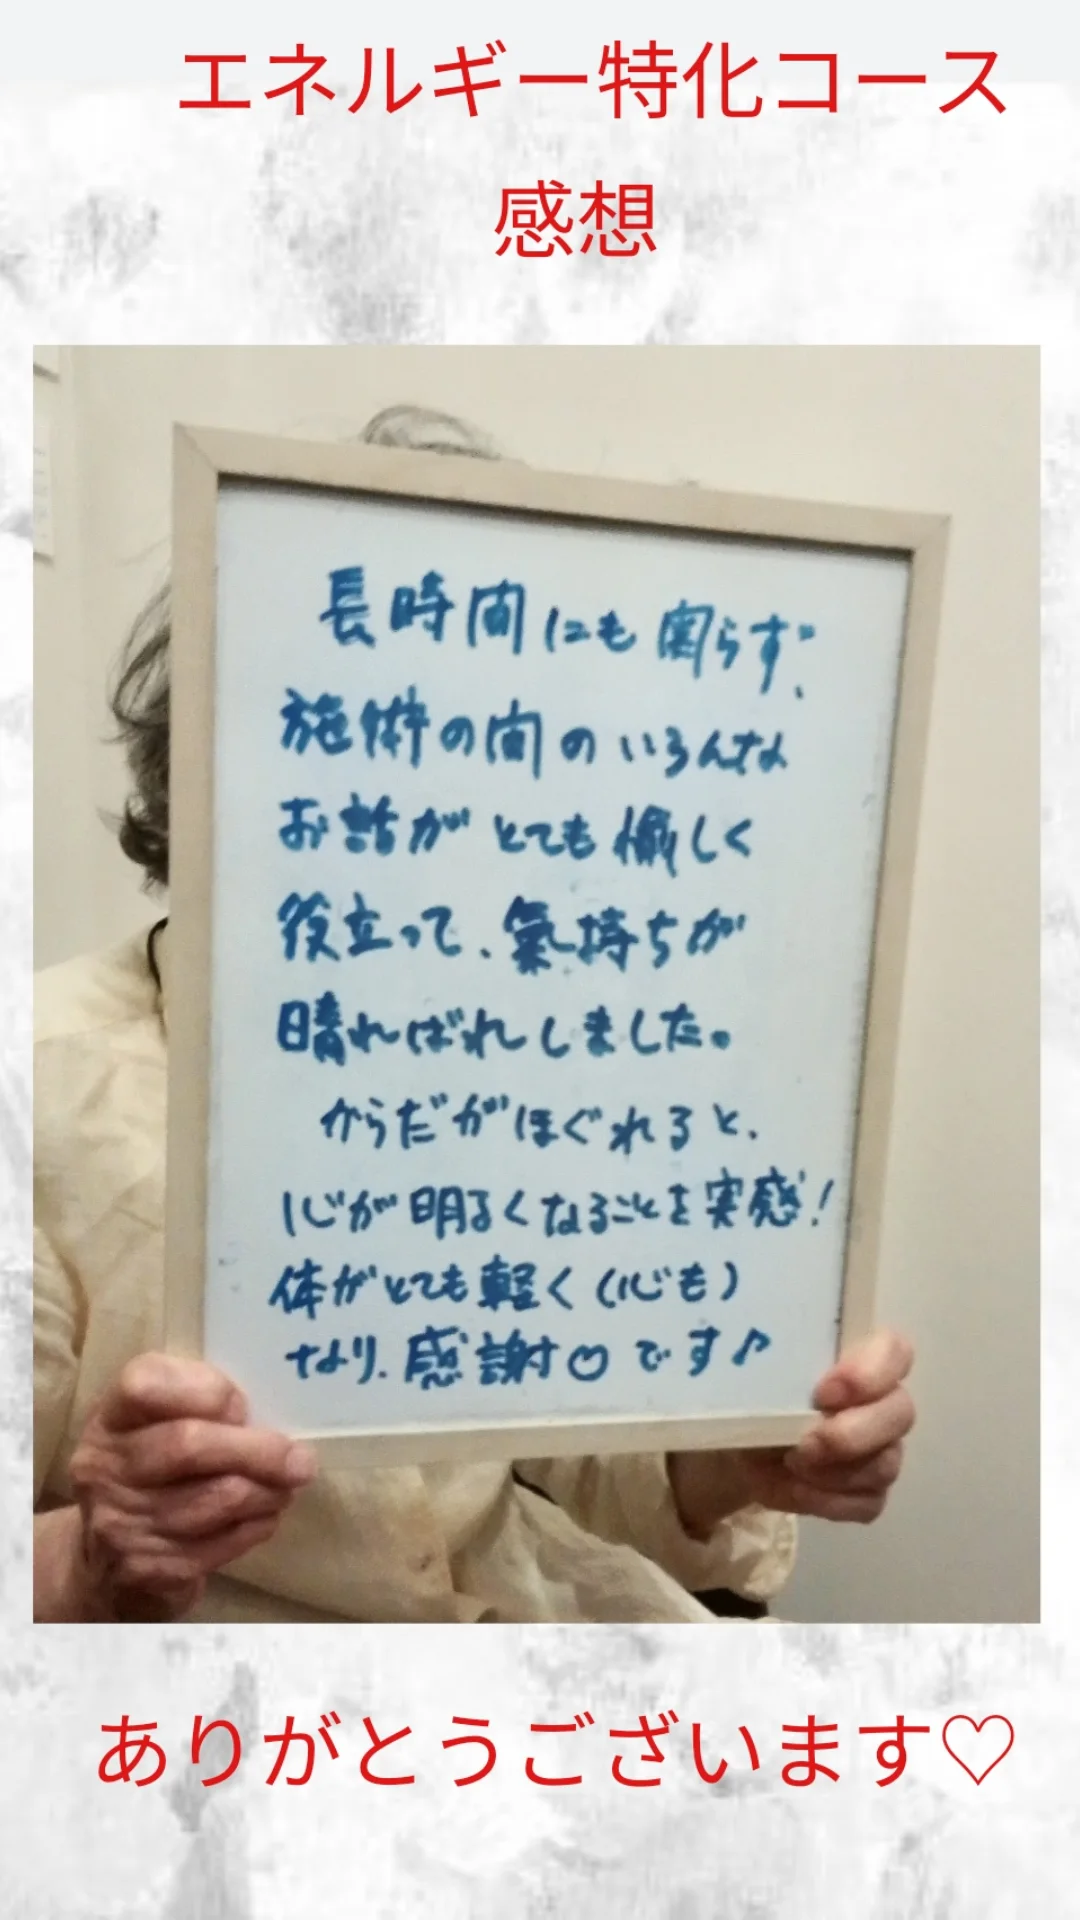 エネルギー特化コース
感想
長時間にも関らず、
施術の間のいろんな
お話がとても愉しく
役立って、氣持ちが
晴ればれしました。
からだがほぐれると、
心が明るくなることを実感！
体がとても軽く(心も)
なり、感謝♡です♪
ありがとうございます♡